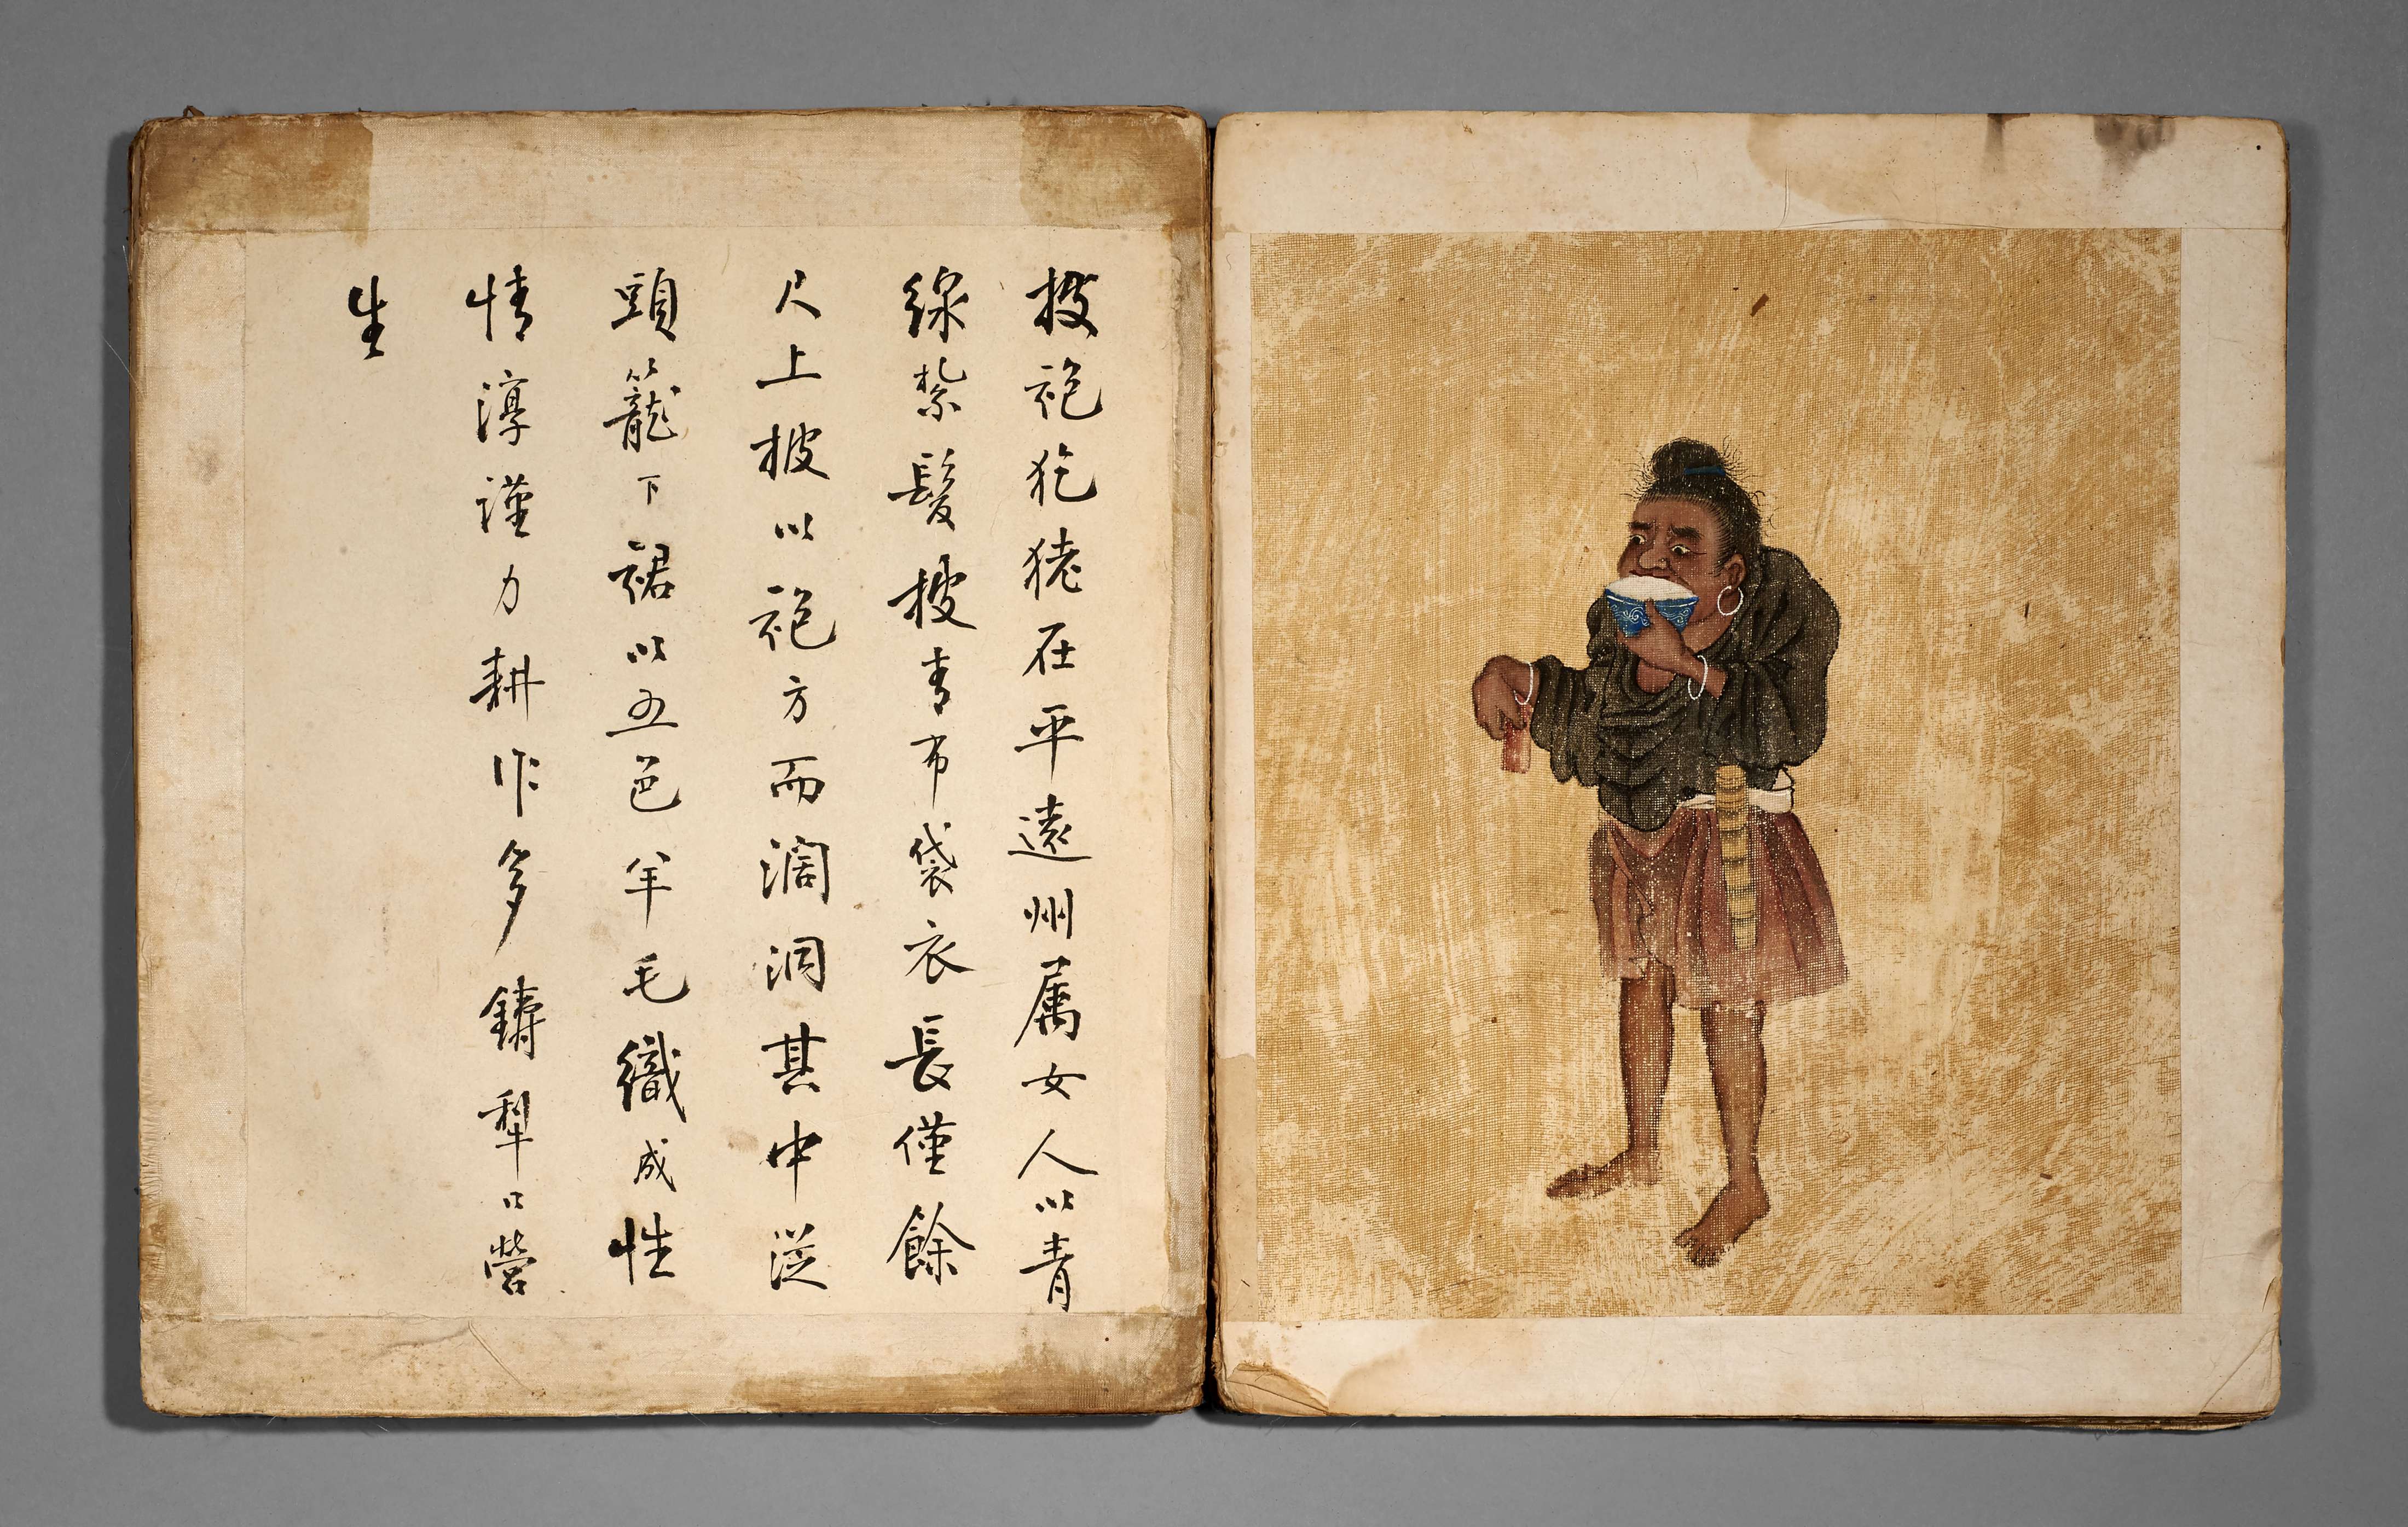 披袍犵狫在平遠州属女人以青
線紮髮披青布袋衣長僅餘
尺上披以袍方而濶洞其中從
頭籠下裙以五色羊毛織成性
情淳謹力耕作多鑄犁以營
生